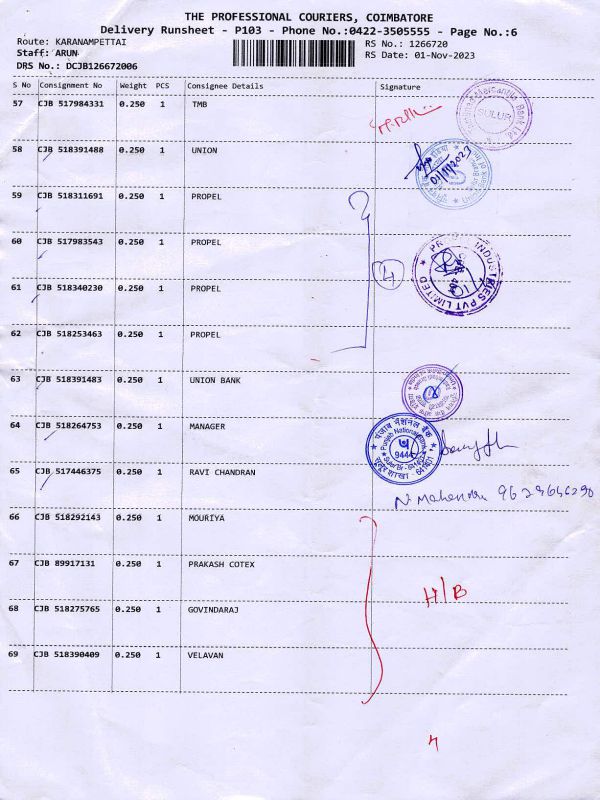 THE PROFESSIONAL COURIERS, COIMBATORE
Delivery Runsheet - P103 - Phone No.:0422-3505555 - Page No.:6
Route: KARANAMPETTAI
RS No.: 1266720
Staff: ARUN
RS Date: 01-Nov-2023
DRS No.: DCJB126672006
S No Consignment No Weight PCS Consignee Details Signature
57 CJB 517984331 0.250 1 TMB
SULUR
58 CJB 518391488 0.250 1 UNION
01/11/2023
59 CJB 518311691 0.250 1 PROPEL
60 CJB 517983543 0.250 1 PROPEL
4
INDUSTRIES PVT LIMITED
61 CJB 518340230 0.250 1 PROPEL
62 CJB 518253463 0.250 1 PROPEL
63 CJB 518391483 0.250 1 UNION BANK
64 CJB 518264753 0.250 1 MANAGER
पंजाब नैशनल बैंक
Punjab National Bank
9444
641401
65 CJB 517446375 0.250 1 RAVI CHANDRAN
66 CJB 518292143 0.250 1 MOURIYA
67 CJB 89917131 0.250 1 PRAKASH COTEX
H/B
68 CJB 518275765 0.250 1 GOVINDARAJ
69 CJB 518390409 0.250 1 VELAVAN